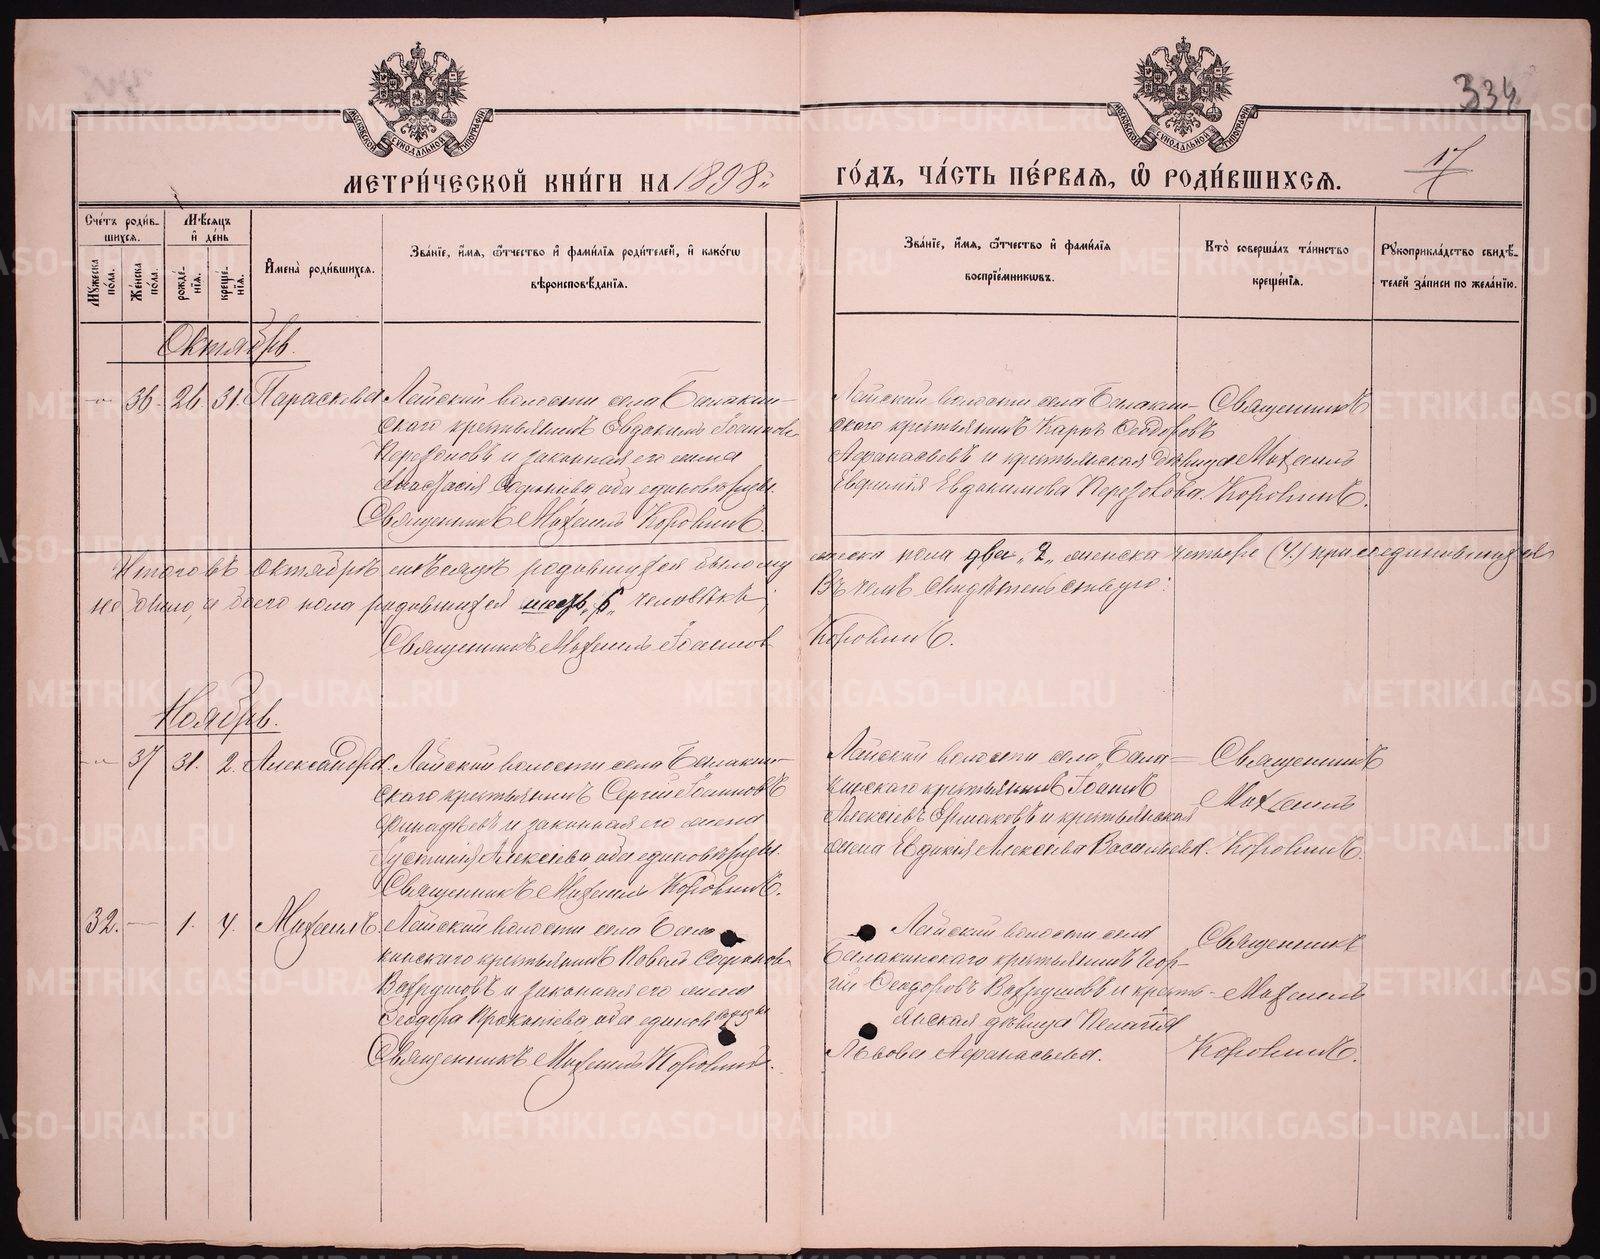 334
17
МЕТРИ́ЧЕСКОЙ КНИ́ГИ НА 1898й ГО́ДЪ, ЧА́СТЬ ПЕ́РВАЯ, Ѿ РОДИ́ВШИХСЯ.
Сче́тъ роди́в-
шихся.
Мѣ́сяцъ
и҆ де́нь
Мꙋ́жеска по́ла.
Же́нска по́ла.
рожде́-
нїѧ.
креще́-
нїѧ.
И҆мена̀ роди́вшихся.
Зва́нїе, и҆́мя, ѻ҆́тчество и҆ фами́лїя роди́телей, и҆ како́гѡ
вѣроисповѣ́данїя.
Зва́нїе, и҆́мя, ѻ҆́тчество и҆ фами́лїя
воспрїе́мниковъ.
Кто̀ соверша́лъ та́инство
креще́нїя.
Рꙋкоприкла́дство свидѣ́-
телей за́писи по жела́нїю.
Октябрь.
36. 26. 31. Параскева
Лайской волости села Балакин-
скаго крестьянинъ Евдокимъ Іоаннов
и законная его жена
Анастасія оба единовѣрцы.
Священникъ Михаилъ Коровинъ.
Лайской волости села Балакин-
скаго крестьянинъ Карпъ Ѳеодоровъ
Афанасьевъ и крестьянская дѣвица
Евдокимова
Священникъ
Михаилъ
Коровинъ.
Итого въ октябрѣ мѣсяцѣ родившихся было му
жеска пола два „2„ женска четыре (4.) присоединившихся
не было, а всего пола родившихся шесть „6„ человѣкъ;
Въ чемъ свидѣтельствую:
Священникъ Михаилъ Іоаннов
Коровинъ.
Ноябрь.
37 31. 2. Александра.
Лайской волости села Балакин-
скаго крестьянинъ Сергій Іоанновъ
и законная его жена
Алексѣева оба единовѣрцы.
Священникъ Михаилъ Коровинъ.
Лайской волости села Бала=
кинскаго крестьянинъ Іоаннъ
Алексѣевъ Ермаковъ и крестьянская
жена Алексѣева Васильева.
Священникъ
Михаилъ
Коровинъ.
32. 1. 4. Михаилъ.
Лайской волости села Бала
кинскаго крестьянинъ Софонов
Вахрушовъ и законная его жена
Ѳеодора Прокопьева, оба единовѣрцы
Священникъ Михаилъ Коровинъ.
Лайской волости села
Балакинскаго крестьянинъ Геор-
гій Ѳеодоровъ Вахрушевъ и кресть-
янская дѣвица Пелагія
Львова Афанасьева.
Священникъ
Михаилъ
Коровинъ.
METRIKI.GASO-URAL.RU